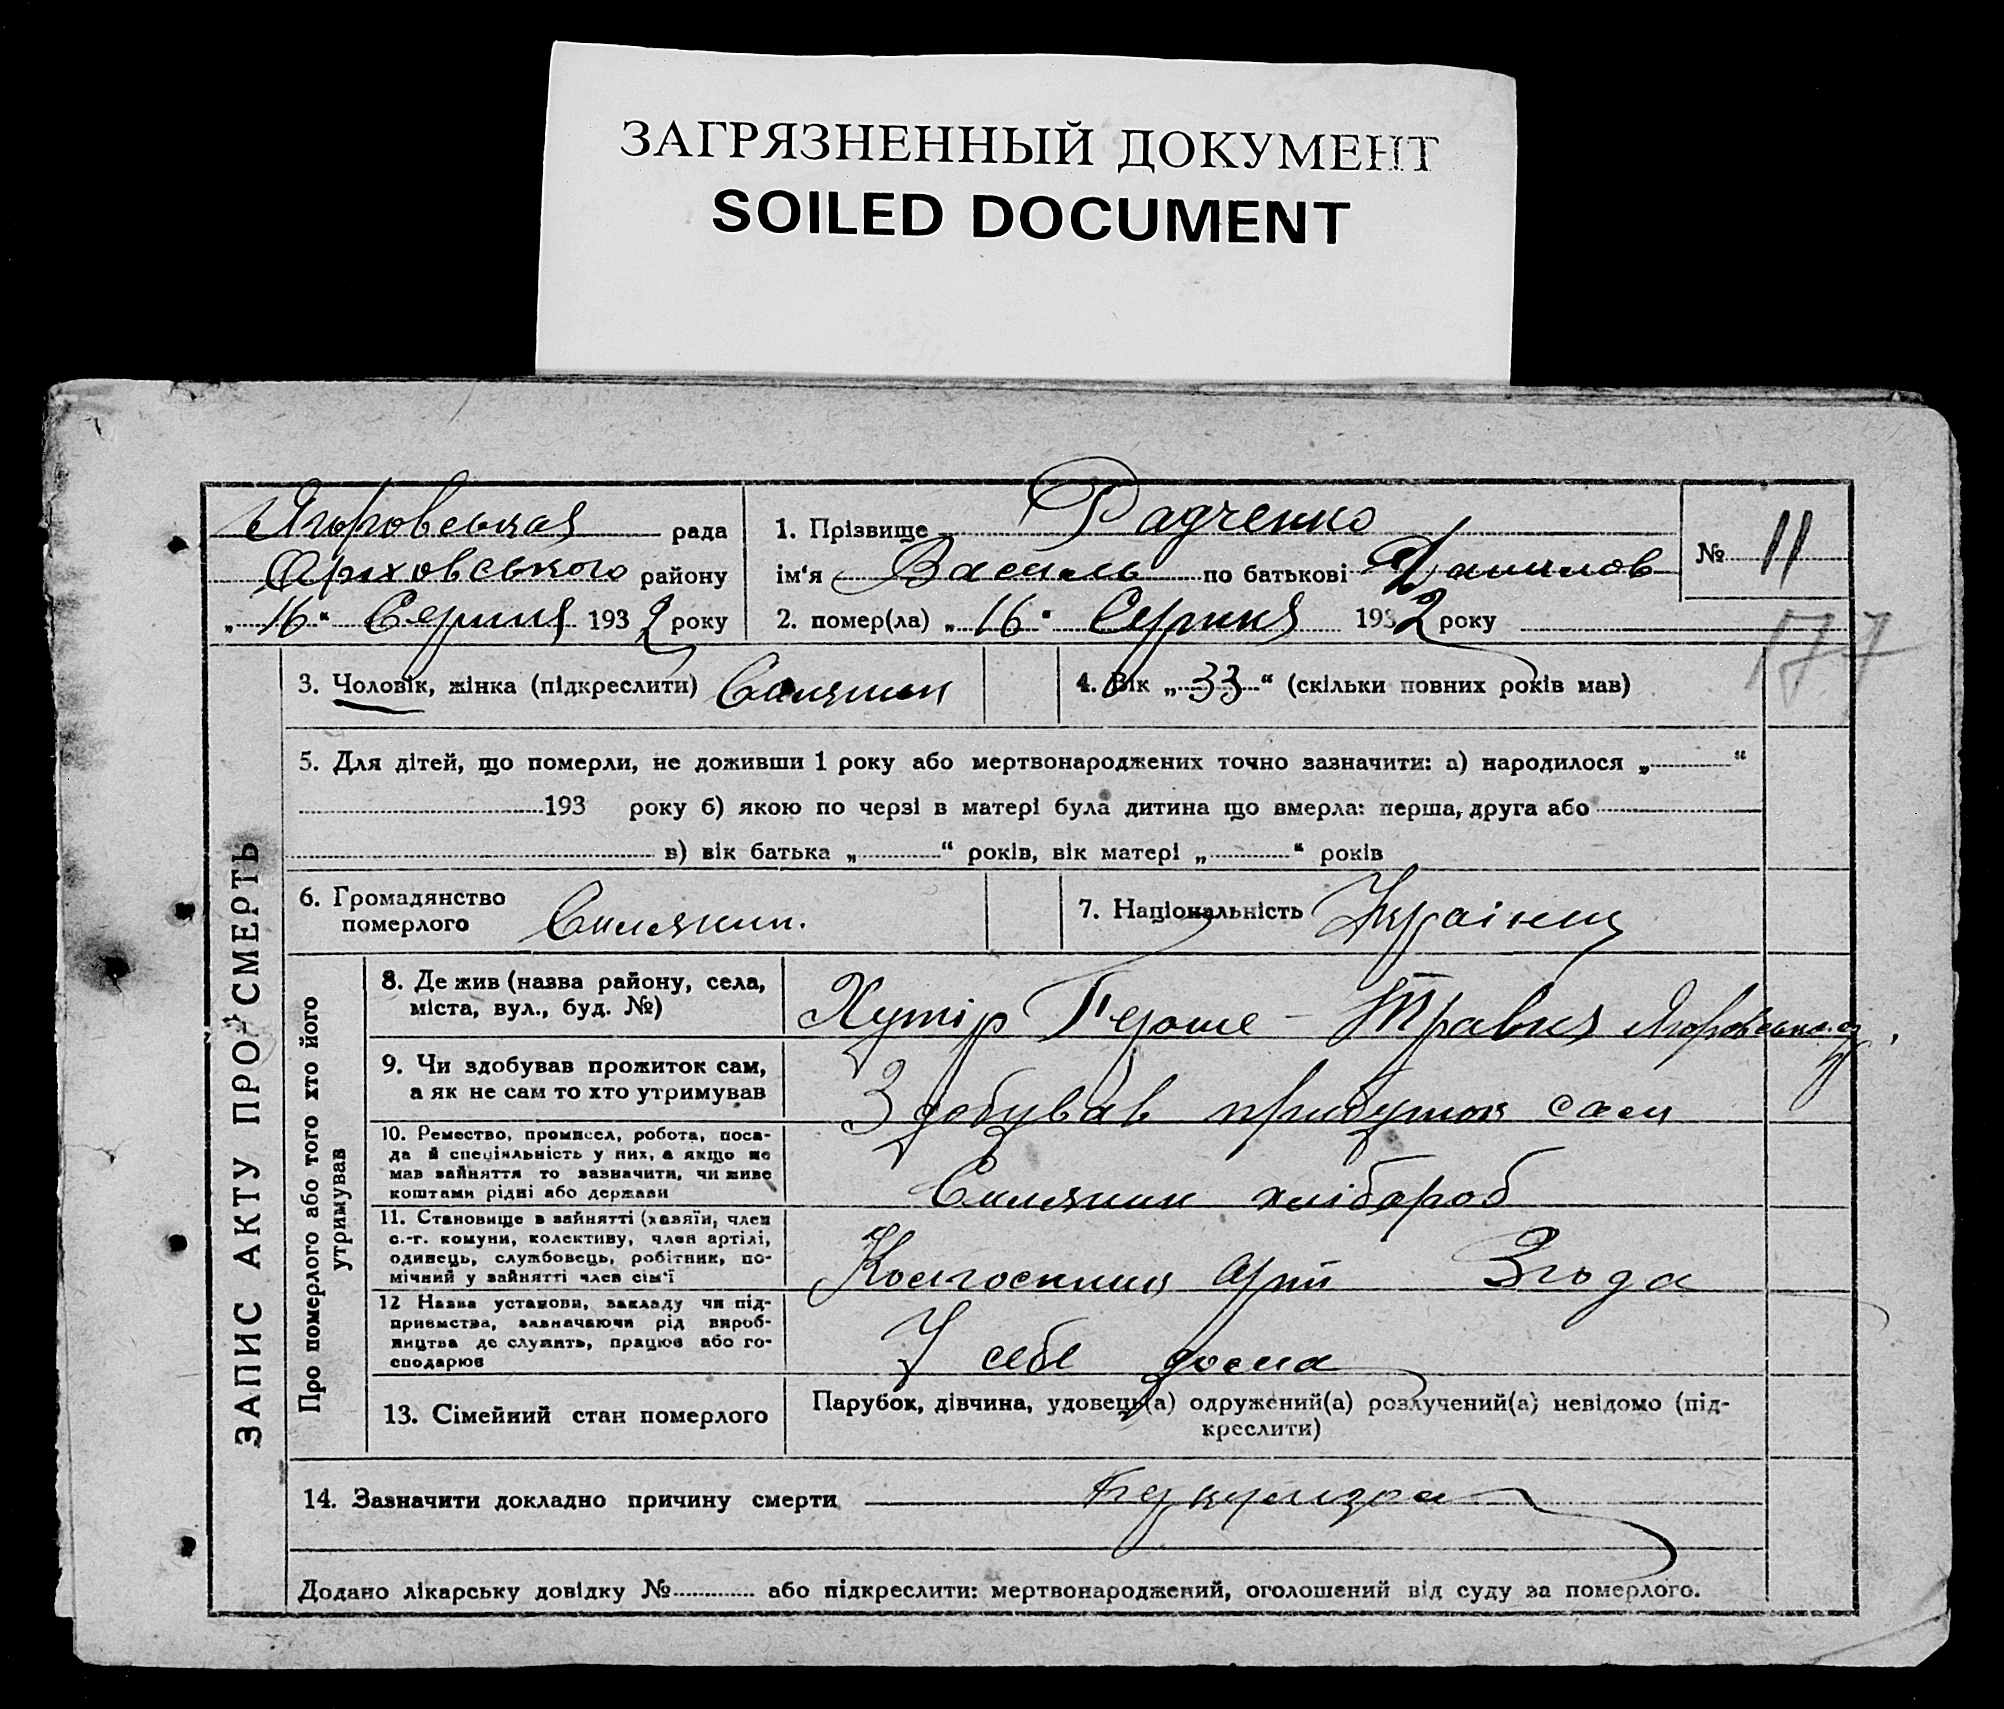 ЗАГРЯЗНЕННЫЙ ДОКУМЕНТ
SOILED DOCUMENT
Ягоровська рада
Оріховського району
„16“ Серпня 1932 року
1. Прізвище Радченко
ім‘я Василь по батькові Данилов
2. помер(ла) „16“ Серпня 1932 року
№ 11
177
ЗАПИС АКТУ ПРО СМЕРТЬ
3. Чоловік, жінка (підкреслити) Силянин
4. Вік „33“ (скільки повних років мав)
5. Для дітей, що померли, не доживши 1 року або мертвонароджених точно зазначити: а) народилося „ “
193 року б) якою по черзі в матері була дитина що вмерла: перша, друга або
в) вік батька „ “ років, вік матері „ “ років
6. Громадянство
померлого Силянин.
7. Національність Украінец
Про померлого або того хто його
утримував
8. Де жив (назва району, села,
міста, вул., буд. №)
Хутір Перше-Травня
9. Чи здобував прожиток сам,
а як не сам то хто утримував
Здобував прибуток сам
10. Ремество, промисел, робота, поса-
да й спеціяльність у них, а якщо не
мав зайняття то зазначити, чи живе
коштами рідні або держави
Силянин хлібороб
11. Становище в зайнятті (хазяїн, член
с.-г. комуни, колективу, член артілі,
одинець, службовець, робітник, по-
мічний у зайнятті член сім‘ї
Колгоспник Арт Згода
12 Назва установи, закладу чи під-
приємства, зазначаючи рід вироб-
ництва де служить, працює або го-
сподарює
У себе дома
13. Сімейний стан померлого
Парубок, дівчина, удовець(а) одружений(а) розлучений(а) невідомо (під-
креслити)
14. Зазначити докладно причину смерти
Додано лікарську довідку № або підкреслити: мертвонароджений, оголошений від суду за померлого.